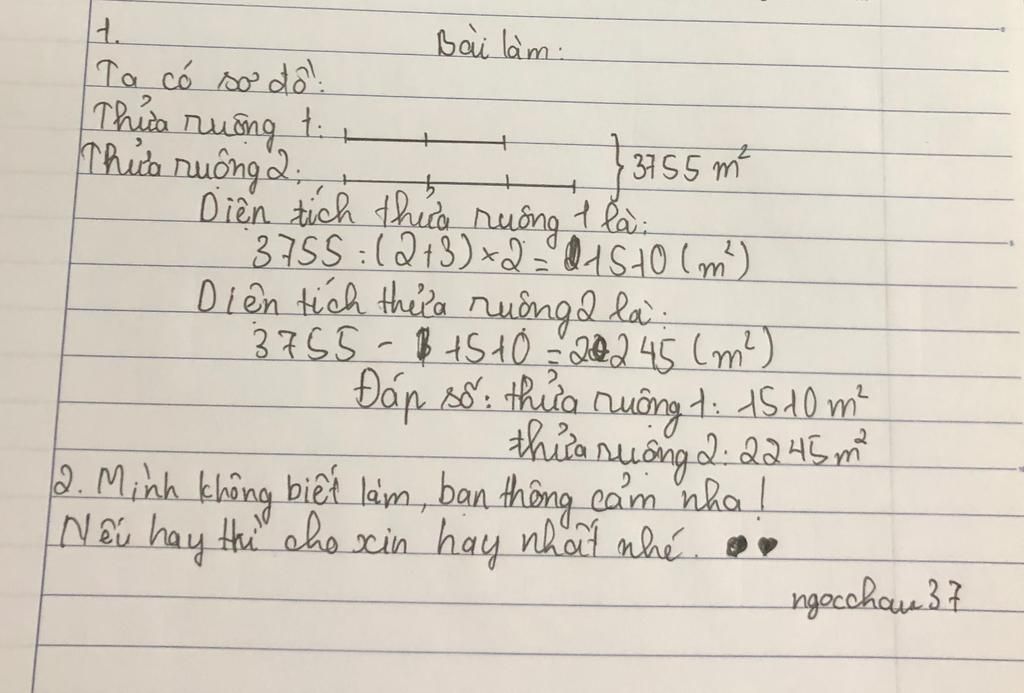 1.
Bài làm:
Ta có sơ đồ:
Thửa ruộng 1:
3755 m²
Thửa ruộng 2:
Diện tích thửa ruộng 1 là:
3755 : (2+3) × 2 = 1510 (m²)
Diện tích thửa ruộng 2 là:
3755 - 1510 = 2245 (m²)
Đáp số: thửa ruộng 1: 1510 m²
thửa ruộng 2: 2245 m²
2. Mình không biết làm, bạn thông cảm nha!
Nếu hay thì cho xin hay nhất nhé. ♥♥
ngocchau37